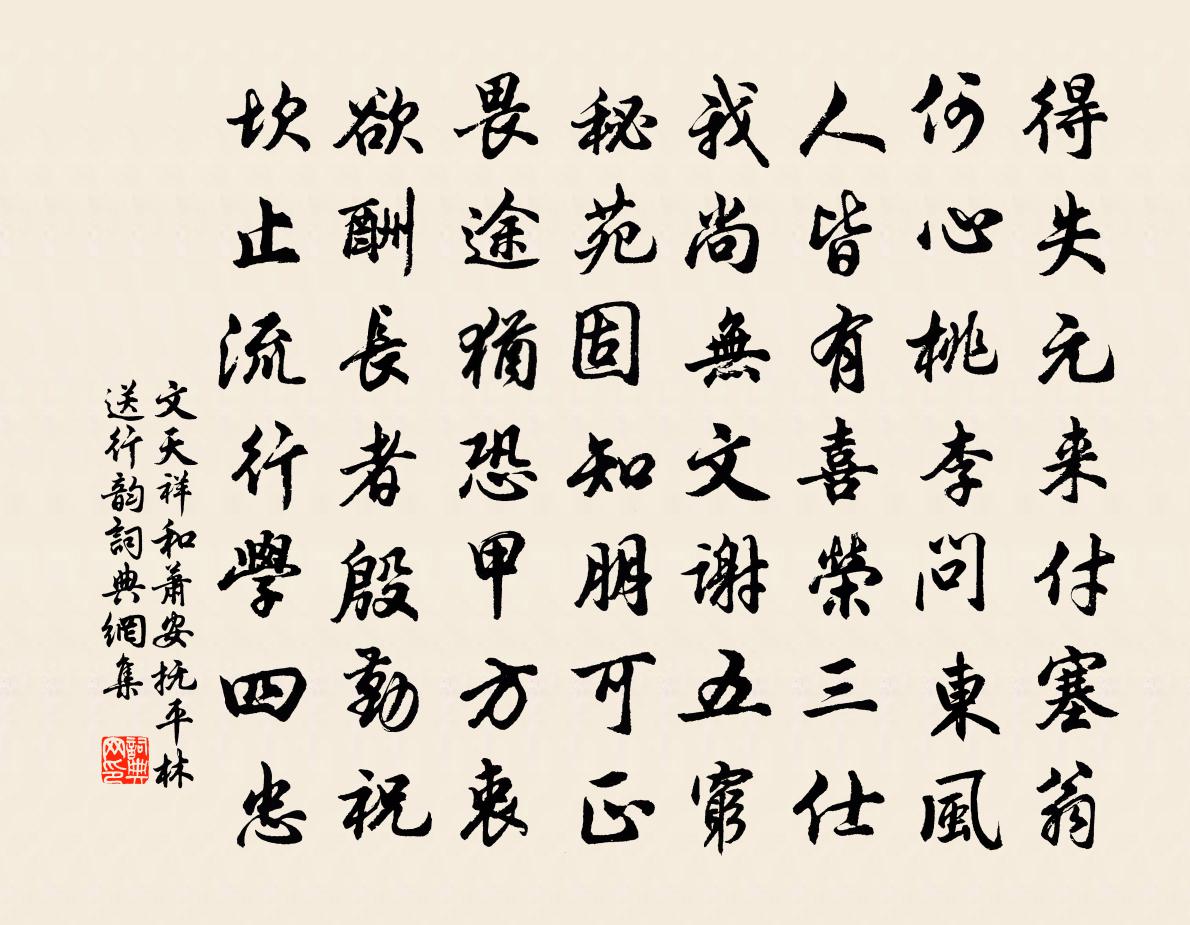 得失元来付塞翁
何心桃李問東風
人皆有喜榮三仕
我尚無文謝五窮
秘苑固知朋可正
畏途猶恐甲方衷
欲酬長者殷勤祝
坎止流行學四忠
文天祥和萧安抚平林
送行韵詞典網集
詞典
网印